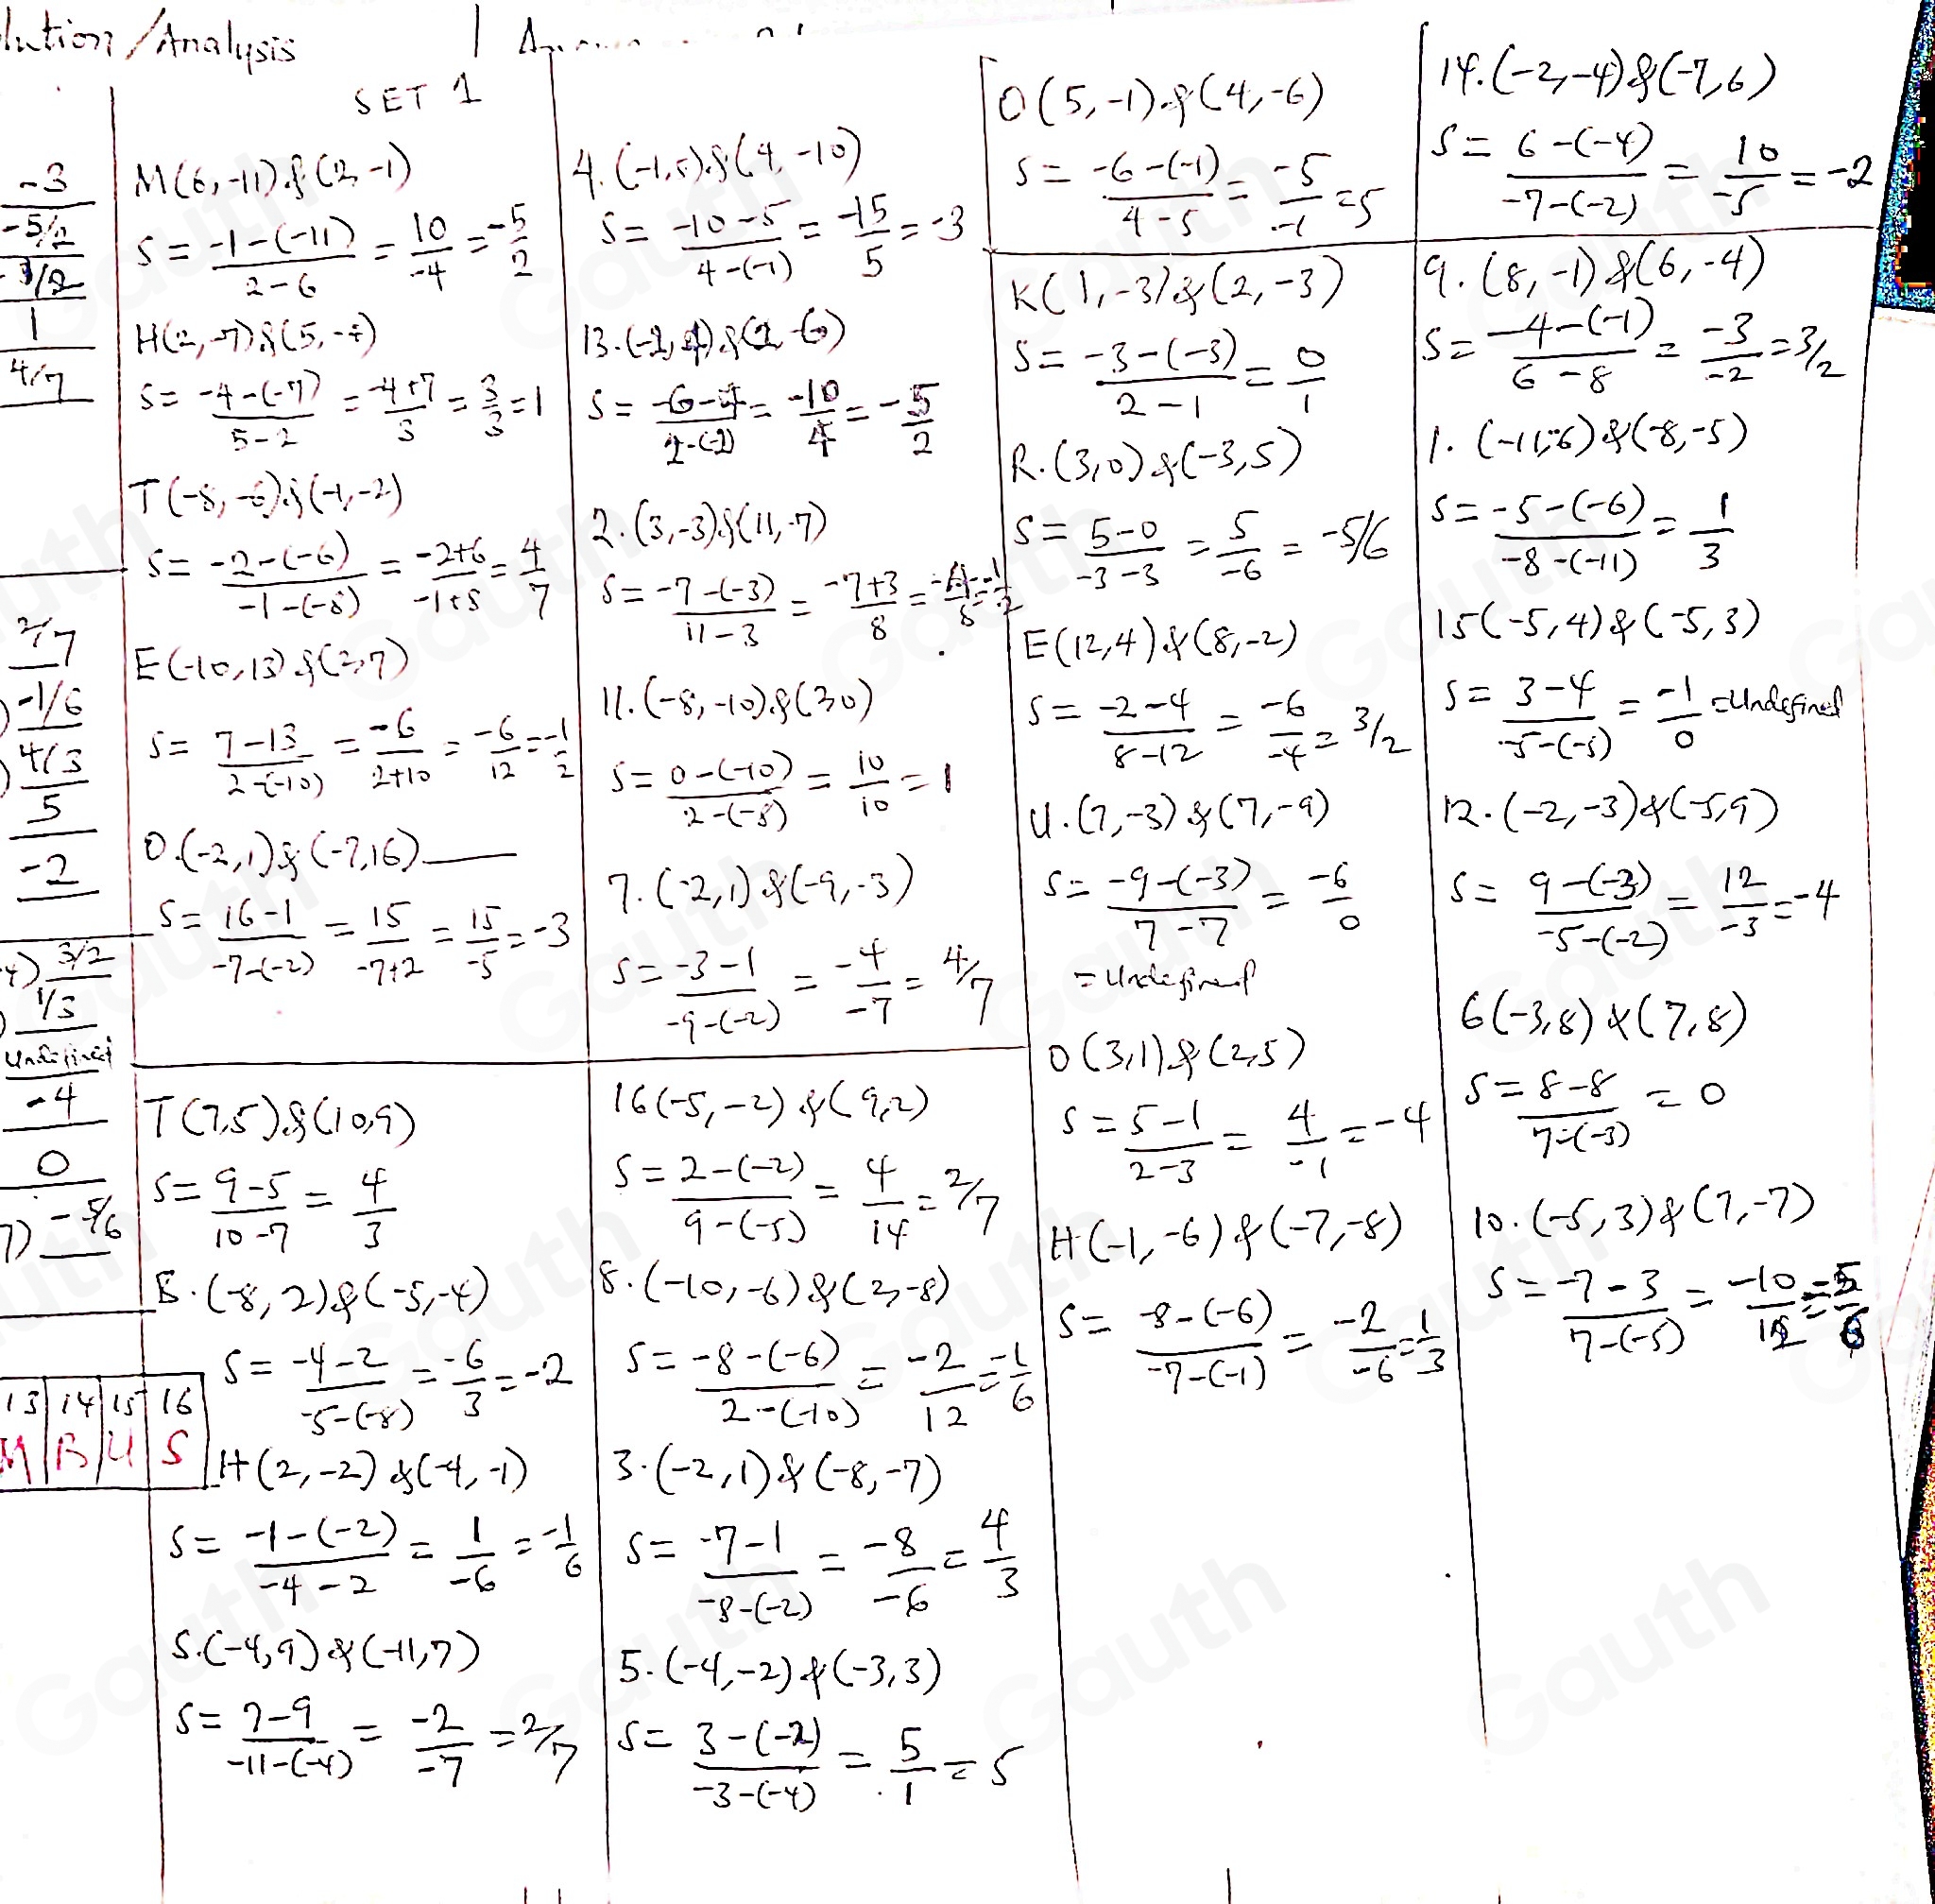 lution/Analysis
-3
-5/2
1
4/7
2/7
-1/6
4/3
5
-2
3/2
1/3
Undefined
-4
0
7) -5/6
13 14 15 16
M B U S
SET 1
M(6,-11)&(2,-1)
S = -1-(-11)/2-6 = 10/-4 = -5/2
H(2,-7)&(5,-4)
S = -4-(-7)/5-2 = -4+7/3 = 3/3 = 1
T(-8,-6)&(-1,-2)
S = -2-(-6)/-1-(-8) = -2+6/-1+8 = 4/7
E(-10,13)&(2,7)
S = 7-13/2-(-10) = -6/2+10 = -6/12 = -1/2
O.(-2,1)&(-7,16)
S = 16-1/-7-(-2) = 15/-7+2 = 15/-5 = -3
T(7,5)&(10,9)
S = 9-5/10-7 = 4/3
B.(-8,2)&(-5,-4)
S = -4-2/-5-(-8) = -6/3 = -2
H(2,-2)&(-4,-1)
S = -1-(-2)/-4-2 = 1/-6 = -1/6
S.(-4,9)&(-11,7)
S = 7-9/-11-(-4) = -2/-7 = 2/7
4.(-1,5)&(4,-10)
S = -10-5/4-(-1) = -15/5 = -3
13.(-2,4)&(2,-6)
S = -6-4/2-(-2) = -10/4 = -5/2
2.(3,-3)&(11,-7)
S = -7-(-3)/11-3 = -7+3/8 = -4/8 = -1/2
11.(-8,-10)&(2,0)
S = 0-(-10)/2-(-8) = 10/10 = 1
7.(-2,1)&(-9,-3)
S = -3-1/-9-(-2) = -4/-7 = 4/7
16(-5,-2)&(9,2)
S = 2-(-2)/9-(-5) = 4/14 = 2/7
8.(-10,-6)&(2,-8)
S = -8-(-6)/2-(-10) = -2/12 = -1/6
3.(-2,1)&(-8,-7)
S = -7-1/-8-(-2) = -8/-6 = 4/3
5.(-4,-2)&(-3,3)
S = 3-(-2)/-3-(-4) = 5/1 = 5
O(5,-1)&(4,-6)
S = -6-(-1)/4-5 = -5/-1 = 5
K(1,-3)&(2,-3)
S = -3-(-3)/2-1 = 0/1
R.(3,0)&(-3,5)
S = 5-0/-3-3 = 5/-6 = -5/6
E(12,4)&(8,-2)
S = -2-4/8-12 = -6/-4 = 3/2
U.(7,-3)&(7,-9)
S = -9-(-3)/7-7 = -6/0
= Undefined
O(3,1)&(2,5)
S = 5-1/2-3 = 4/-1 = -4
H(-1,-6)&(-7,-8)
S = -8-(-6)/-7-(-1) = -2/-6 = 1/3
14.(-2,-4)&(-7,6)
S = 6-(-4)/-7-(-2) = 10/-5 = -2
9.(8,-1)&(6,-4)
S = -4-(-1)/6-8 = -3/-2 = 3/2
1.(-11,-6)&(-8,-5)
S = -5-(-6)/-8-(-11) = 1/3
15(-5,4)&(-5,3)
S = 3-4/-5-(-5) = -1/0 = Undefined
12.(-2,-3)&(-5,9)
S = 9-(-3)/-5-(-2) = 12/-3 = -4
6(-3,8)&(7,8)
S = 8-8/7-(-3) = 0
10.(-5,3)&(7,-7)
S = -7-3/7-(-5) = -10/12 = -5/6